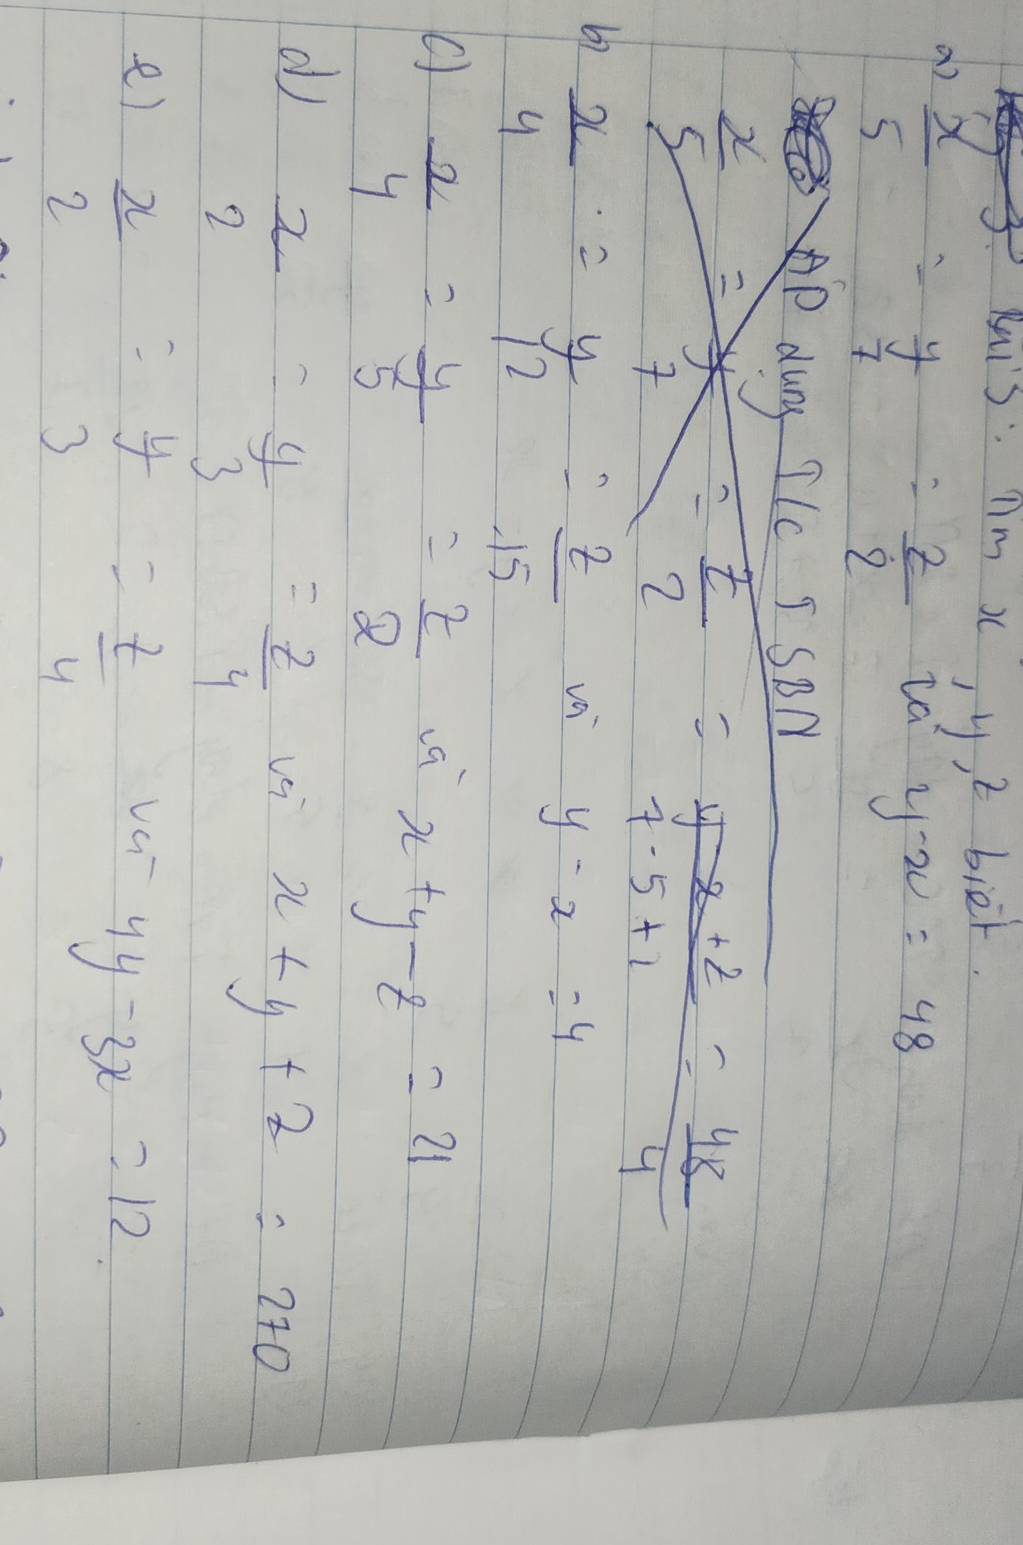 bài 3: Tìm x, y, z biết.
a) x/5 = y/7 = z/2 và y-x = 48
ÁP dụng T/c T SBN
x/5 = y/7 = z/2 = y-x+z/7-5+2 = 48/4
b) x/4 = y/12 = z/15 và y - x = 4
c) x/4 = y/5 = z/2 và x + y - z = 21
d) x/2 = y/3 = z/4 và x + y + z = 270
e) x/2 = y/3 = z/4 và 4y - 3x = 12.